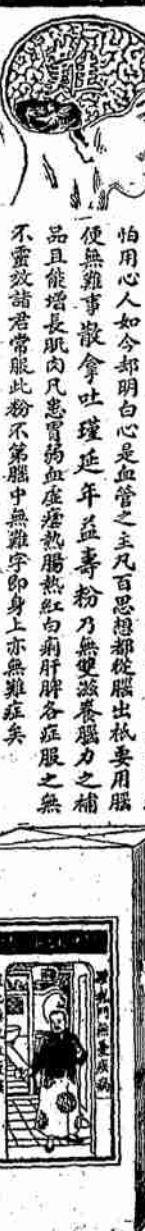 難
怕用心人如今却明白心是血管之主凡百思想都從腦出祇要用腦
便無難事散拿吐瑾延年益壽粉乃無雙滋養腦力之補
品且能增長肌肉凡患胃弱血虛瘧熱腸熱紅白痢肝脾各症服之無
不靈效諸君常服此粉不第腦中無難字即身上亦無難症矣